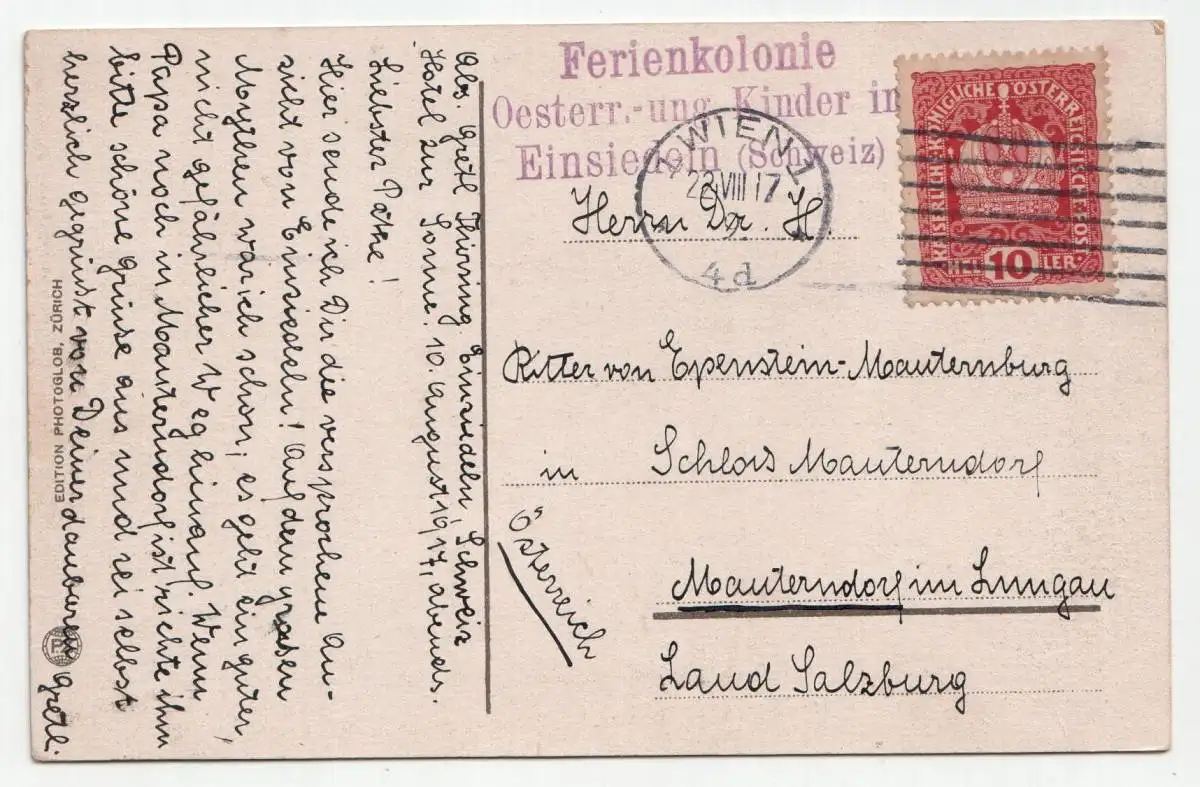 Ferienkolonie
Oesterr.-ung. Kinder in
Einsiedeln (Schweiz)
1 WIEN 1
22 VIII 17
4d
KAISERLICHE KÖNIGLICHE ÖSTERREICHISCHE POST
10
HELLER
Herrn Dr. H.
Ritter von Epenstein-Mauternburg
in Schloss Mauterndorf
Mauterndorf im Lungau
Land Salzburg
Österreich
Abs. Gretl Thirring Einsiedeln, Schweiz
Hotel zur Sonne. 10. August 1917, abends.
Liebster Pate!
Hier sende ich Dir die versprochene An-
sicht von Einsiedeln! Auf dem grossen
Mythen war ich schon; es geht ein guter,
nicht gefährlicher Weg hinauf. Wenn
Papa noch in Mauterndorf ist richte ihm
bitte schöne Grüsse aus und sei selbst
herzlich gegrüsst von Deiner dankbaren
Gretl.
EDITION PHOTOGLOB, ZÜRICH